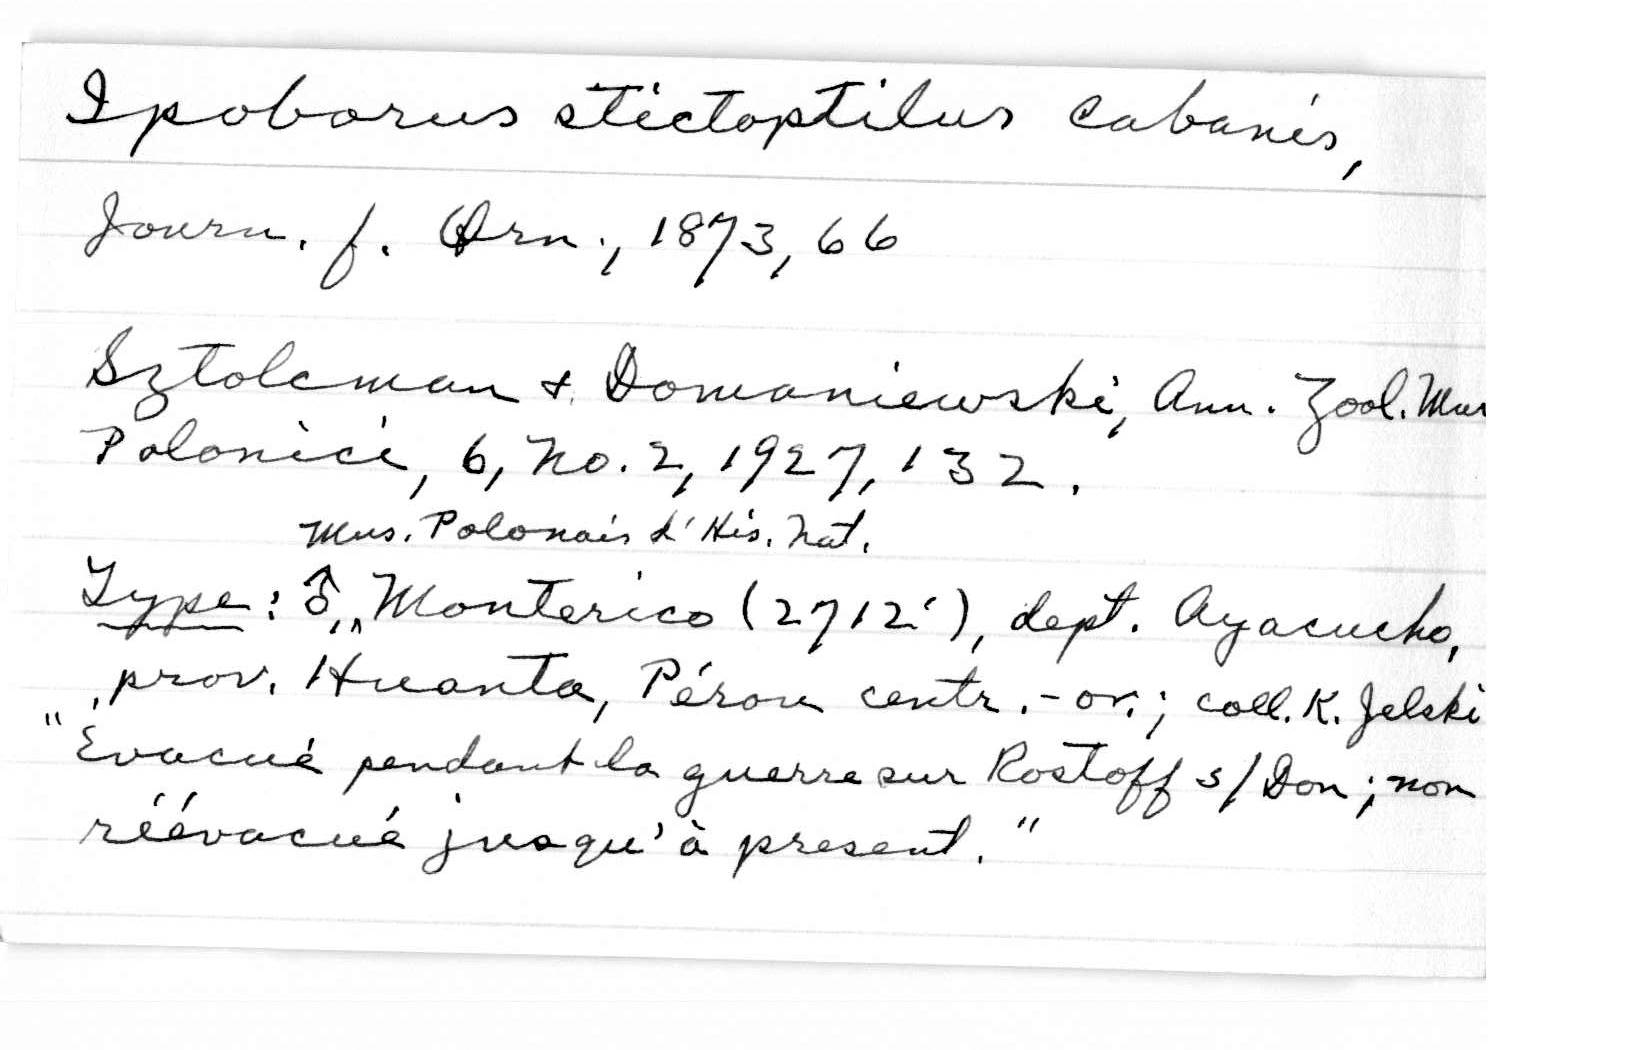 Ipoborus stictoptilus Cabanis,
Journ. f. Orn., 1873, 66
Sztolcman & Domaniewski, Ann. Zool. Mus
Polonici, 6, No. 2, 1927, 132.
Mus. Polonais d'His. Nat.
Type: ♂, Monterico (2712'), dept. Ayacucho,
prov. Huanta, Pérou centr.-or.; coll. K. Jelski
"Evacué pendant la guerre sur Rostoff s/Don; non
réévacué jusqu'à present."